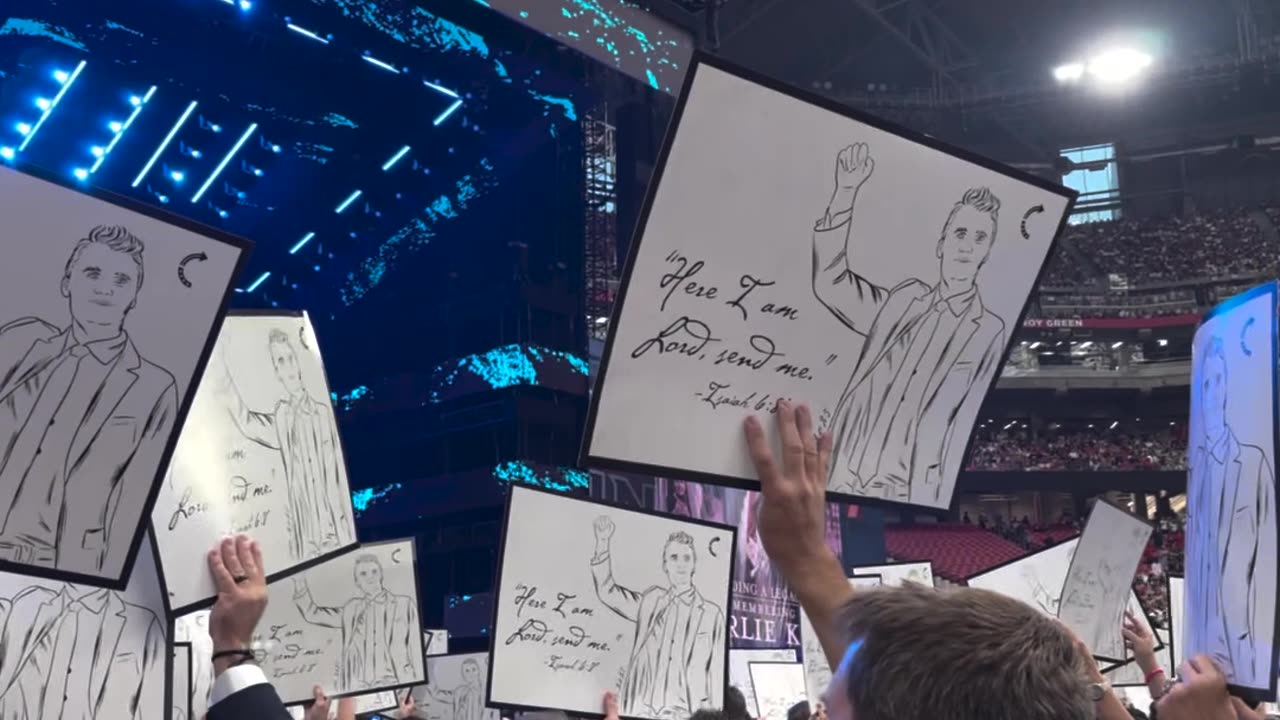 "Here I am
Lord, send me."
-Isaiah 6:8
am
Lord, send me.
Isaiah 6:8
I am
send me."
Isaiah 6:8
"Here I am
Lord, send me."
-Isaiah 6:8
ROY GREEN
DING A LEGA
MEMBERING
RLIE K